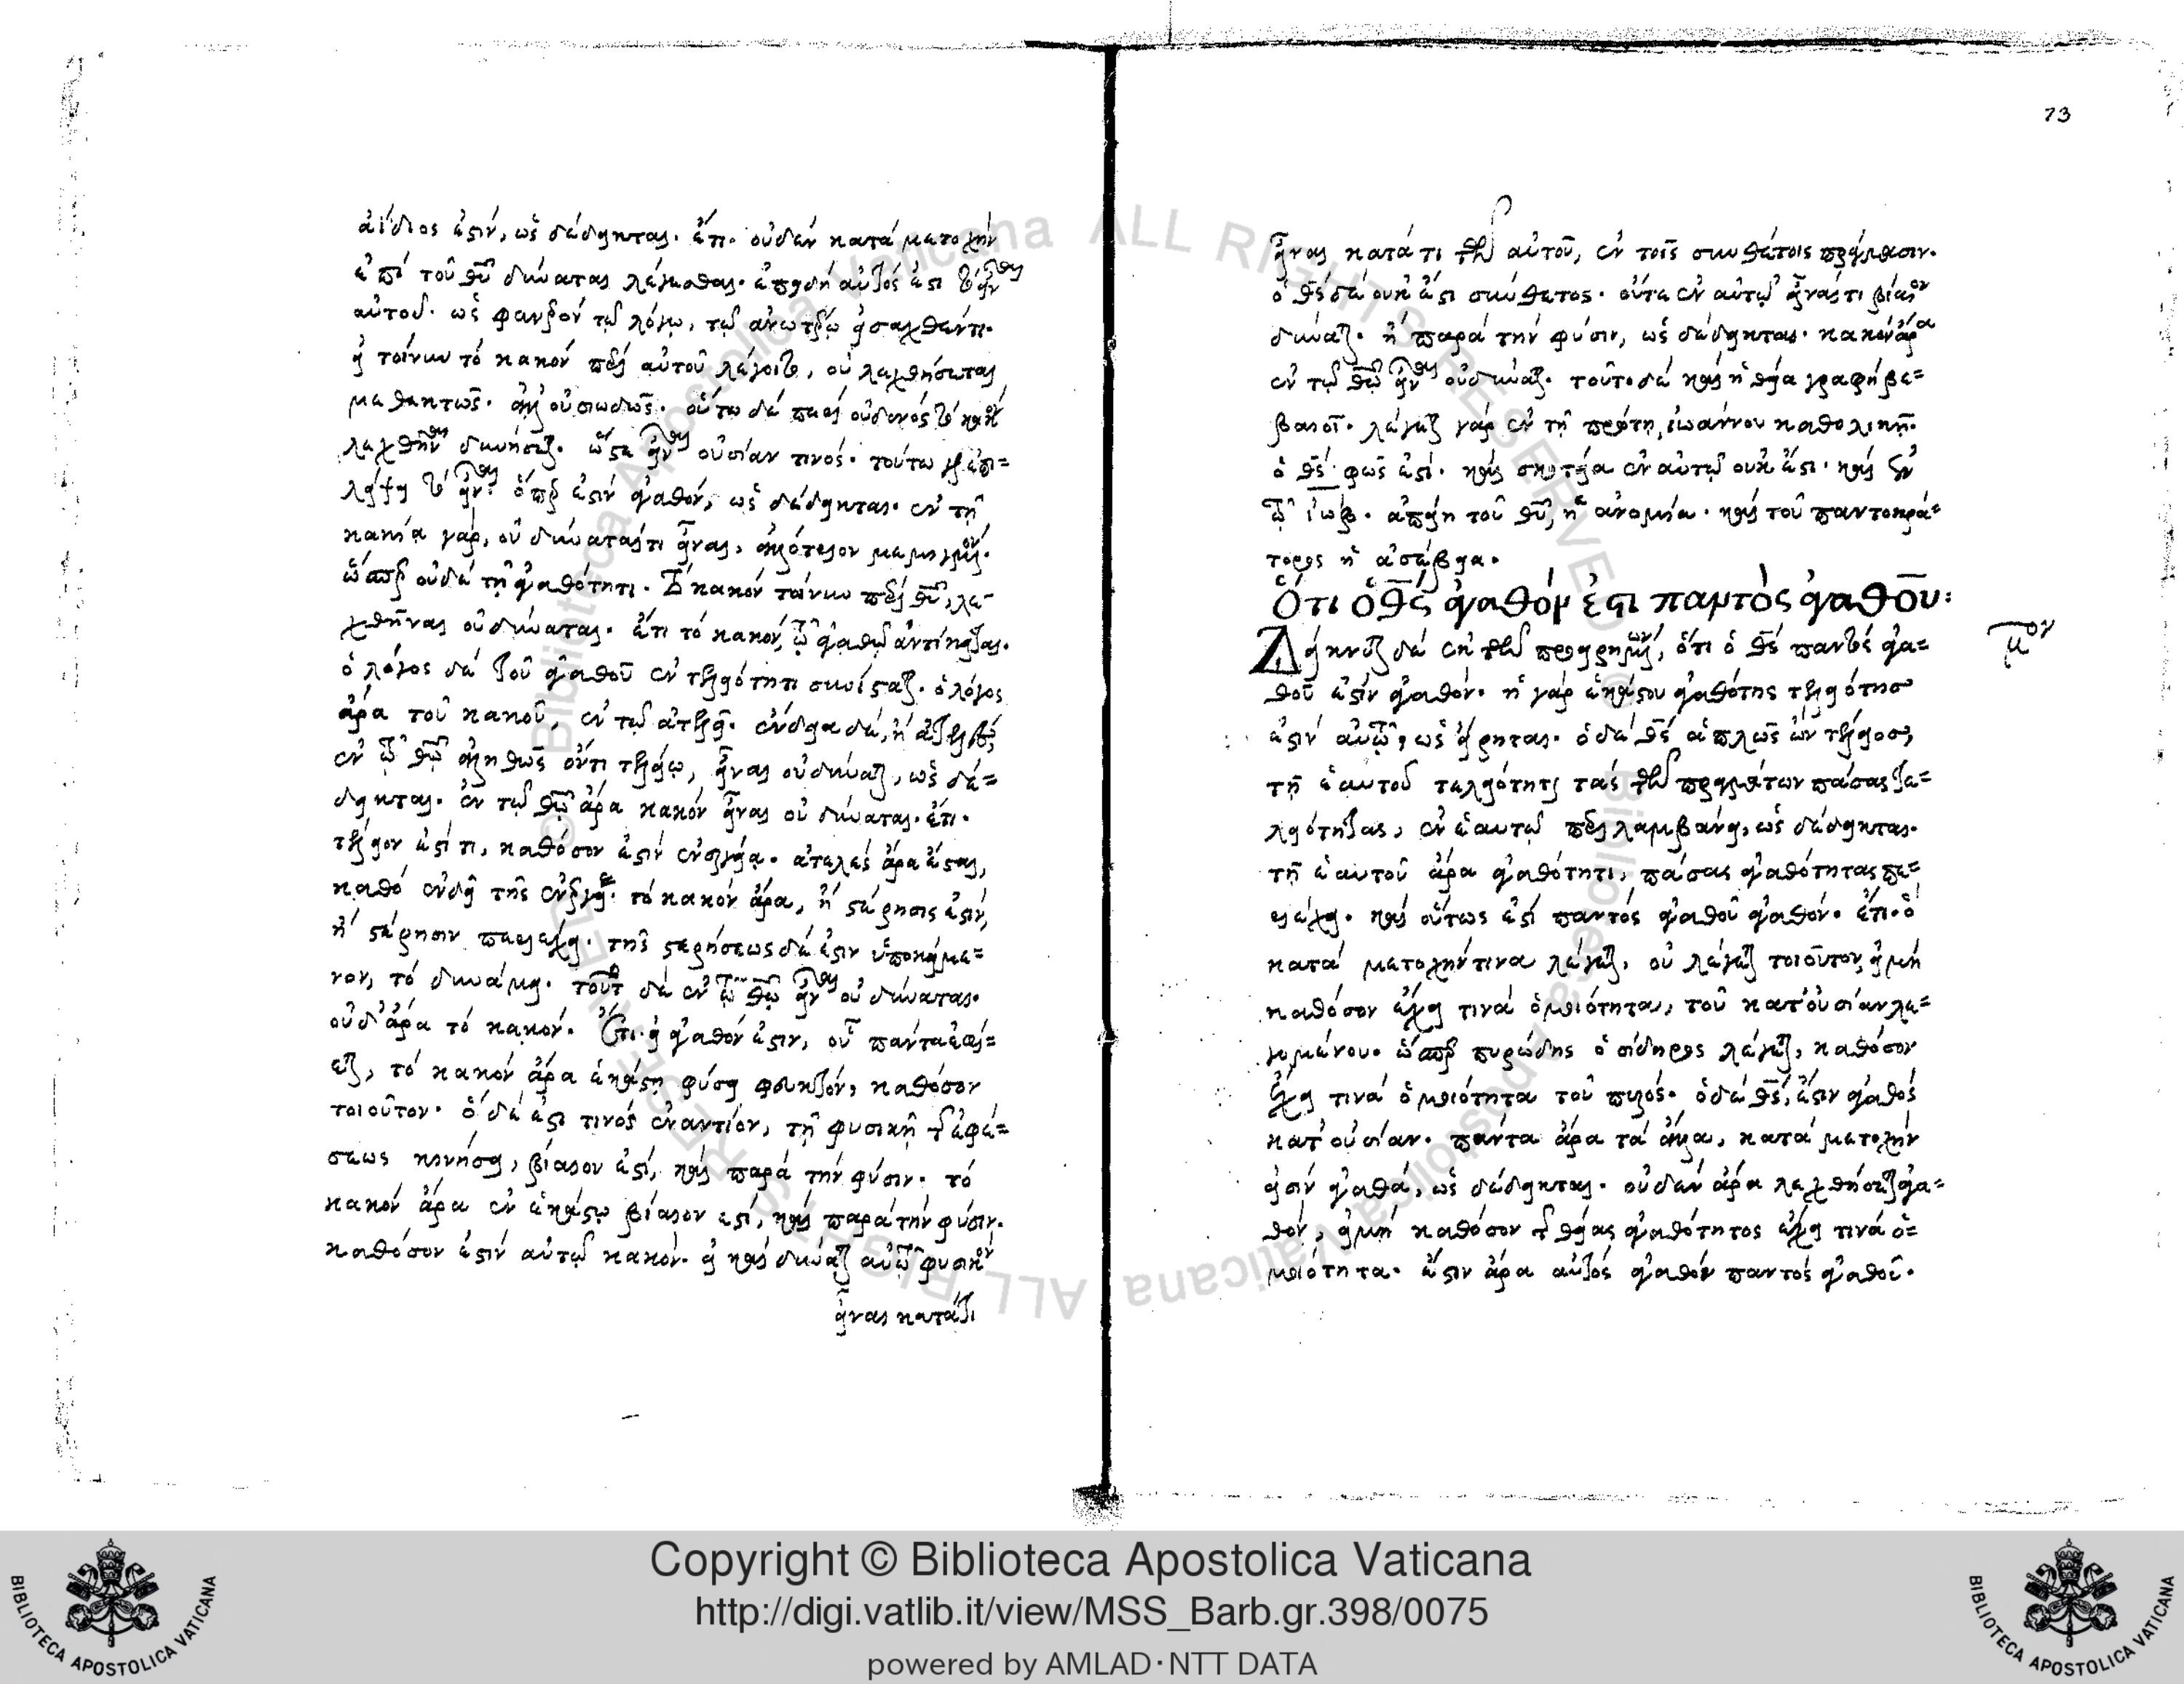 ἀΐδιος ἐστίν, ὡς δέδεικται. ἔτι. οὐδέν κατά μετοχήν
ἐπί τοῦ θυ δύναται λέγεσθαι. ἐπειδή αὐτός ἐστι τό εἶναι
αὐτοῦ. ὡς φανερόν τῷ λόγῳ, τῷ ἀνωτέρω εἰσαχθέντι.
εἰ τοίνυν τό κακόν περί αὐτοῦ λέγοιτο, οὐ λεχθήσεται
μεθεκτῶς. ἀλλ' οὐσιωδῶς. οὕτω δέ περί οὐδενός τό κακόν
λεχθῆναι δυνήσεται. ὥστε εἶναι οὐσίαν τινός. τούτω γάρ ἐπι=
λείψει τό εἶναι. ὅπερ ἐστίν ἀγαθόν, ὡς δέδεικται. ἐν τῇ
κακίᾳ γάρ, οὐ δύναταί τι εἶναι, ἀλλότριον μεμιγμένον.
ὥσπερ οὐδέ τῇ ἀγαθότητι. Τό κακόν τοίνυν περί θυ, λε-
χθῆναι οὐ δύναται. ἔτι τό κακόν, τῷ ἀγαθῷ ἀντίκειται.
ὁ λόγος δέ τοῦ ἀγαθοῦ ἐν τελειότητι συνίσταται. ὁ λόγος
ἄρα τοῦ κακοῦ, ἐν τῷ ἀτελεῖ. ἔνδεια δέ, ἤ
ἐν τῷ θῷ ἀληθῶς ὄντι τελείῳ, εἶναι οὐ δύναται, ὡς δέ=
δεικται. ἐν τῷ θῷ ἄρα κακόν εἶναι οὐ δύναται. ἔτι.
τέλειον ἐστί τι, καθόσον ἐστίν ἐνεργείᾳ. ἀτελές ἄρα ἔσται,
καθό ἐνδεῖ τῆς ἐνεργείας. τό κακόν ἄρα, ἤ στέρησις ἐστίν,
ἤ στέρησιν περιέχει. τῆς στερήσεως δέ ἐστιν ὑποκείμε=
νον, τό δυνάμει. τοῦτο δέ ἐν τῷ θῷ εἶναι οὐ δύναται.
οὐδ' ἄρα τό κακόν. Ἔτι. εἰ ἀγαθόν ἐστιν, οὗ πάντα ἐφί=
εται, τό κακόν ἄρα ἑκάστη φύσει φευκτόν, καθόσον
τοιοῦτον. ὁ δέ ἐστι τινός ἐναντίον, τῇ φυσικῇ τῆς ἐφέ=
σεως κινήσει, βίαιον ἐστί, καί παρά τήν φύσιν. τό
κακόν ἄρα ἐν ἑκάστῳ βίαιον ἐστί, καί παρά τήν φύσιν.
καθόσον ἐστίν αὐτῷ κακόν. εἰ καί δύναται αὐτῷ φυσικόν
εἶναι κατά τι
73
εἶναι κατά τι τῶν αὐτοῦ, ἐν τοῖς συνθέτοις πράγμασιν.
ὁ θς δέ οὐκ ἔστι σύνθετος. οὔτε ἐν αὐτῷ εἶναί τι βίαιον
δύναται. ἤ παρά τήν φύσιν, ὡς δέδεικται. κακόν ἄρα
ἐν τῷ θῷ εἶναι οὐ δύναται. τοῦτο δέ καί ἡ θεία γραφή βε=
βαιοῖ. λέγεται γάρ ἐν τῇ πρώτῃ, ἰωάννου καθολικῇ.
ὁ θς φῶς ἐστί. καί σκοτεία ἐν αὐτῷ οὐκ ἔστι. καί ἐν
τῷ ἰώβ. ἀπείη τοῦ θυ, ἡ ἀνομία. καί τοῦ παντοκρά=
τορος ἡ ἀσέβεια.
Ὅτι ὁ θς ἀγαθόν ἐστι παντός ἀγαθοῦ:
Δείκνυται δέ ἐκ τῶν προειρημένων, ὅτι ὁ θς παντός ἀγα=
θοῦ ἐστίν ἀγαθόν. ἡ γάρ ἑκάστου ἀγαθότης τελειότης
ἐστίν αὐτῷ, ὡς εἴρηται. ὁ δέ θς ἁπλῶς ὤν τέλειος,
τῇ ἑαυτοῦ τελειότητι τάς τῶν πραγμάτων πάσας τε=
λειότητας, ἐν ἑαυτῷ περιλαμβάνει, ὡς δέδεικται.
τῇ ἑαυτοῦ ἄρα ἀγαθότητι, πάσας ἀγαθότητας πε=
ριέχει. καί οὕτως ἐστί παντός ἀγαθοῦ ἀγαθόν. ἔτι. ὁ
κατά μετοχήν τινα λέγεται, οὐ λέγεται τοιοῦτον, εἰ μή
καθόσον ἔχει τινά ὁμοιότητα, τοῦ κατ' οὐσίαν λε=
γομένου. ὥσπερ πυρώδης ὁ σίδηρος λέγεται, καθόσον
ἔχει τινά ὁμοιότητα τοῦ πυρός. ὁ δέ θς, ἔστιν ἀγαθός
κατ' οὐσίαν. πάντα ἄρα τά ἄλλα, κατά μετοχήν
εἰσίν ἀγαθά, ὡς δέδεικται. οὐδέν ἄρα λεχθήσεται ἀγα=
θόν, εἰ μή καθόσον τῆς θείας ἀγαθότητος ἔχει τινά ὁ=
μοιότητα. ἔστιν ἄρα αὐτός ἀγαθόν παντός ἀγαθοῦ.
μον
Copyright © Biblioteca Apostolica Vaticana
http://digi.vatlib.it/view/MSS_Barb.gr.398/0075
powered by AMLAD·NTT DATA
BIBLIOTECA APOSTOLICA VATICANA
BIBLIOTECA APOSTOLICA VATICANA
© Biblioteca Apostolica Vaticana ALL RIGHTS RESERVED
© Biblioteca Apostolica Vaticana ALL RIGHTS RESERVED